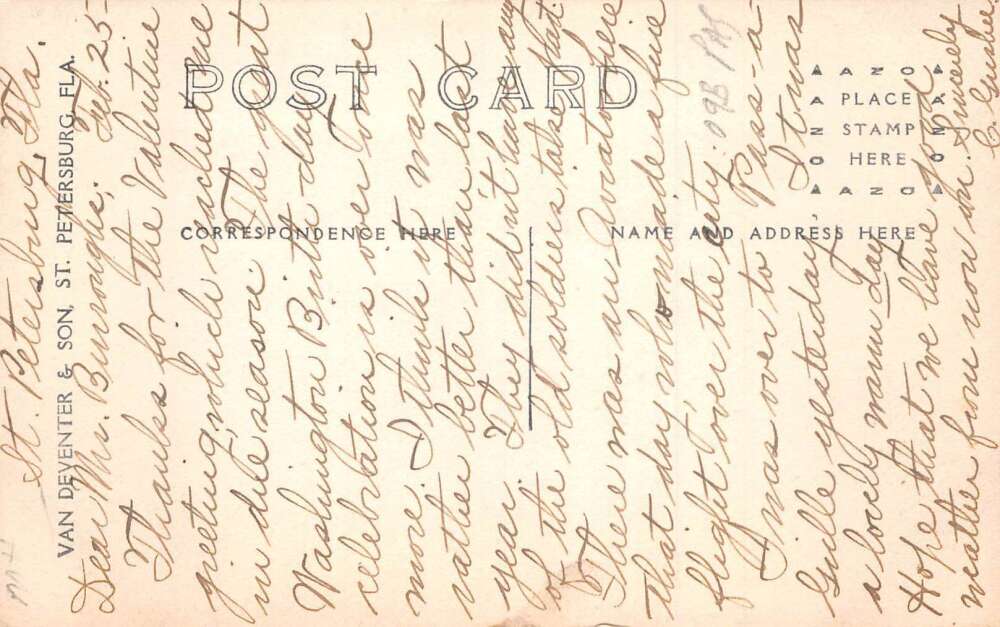 St. Petersburg, Fla.
Feb. 25-
Dear Mr. Burroughs;
Thanks for the Valentine
greeting, which reached me
in due season. The great
Washington Birth-day
celebration is over once
more. I think it was
rather better than last
year. They did n't have any
of the old soldiers take part.
There was an Aviator here
that day who made a fine
flight over the city.
I was over to Pass-a-
Grille yesterday. It was
a lovely warm day.
Hope that we have good
weather from now on. Sincerely
VAN DEVENTER & SON, ST. PETERSBURG, FLA.
POST CARD
CORRESPONDENCE HERE
NAME AND ADDRESS HERE
AZO
PLACE
STAMP
HERE
AZO
AZO
AZO